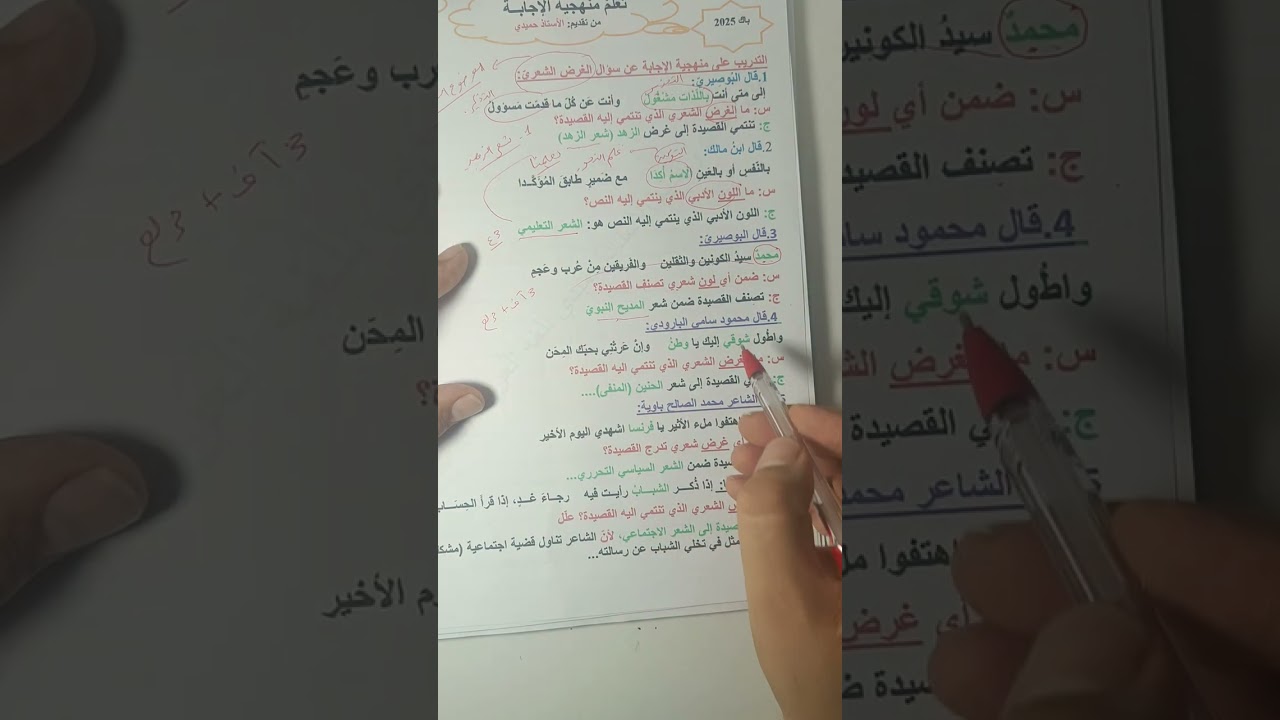 تعلم منهجية الإجابة
من تقديم: الأستاذ حميدي
باك 2025
التدريب على منهجية الإجابة عن سؤال الغرض الشعري:
1.قال البوصيري:
إلى متى أنت باللذات مشغول وأنت عن كل ما قدمت مسؤول
س: ما الغرض الشعري الذي تنتمي إليه القصيدة؟
ج: تنتمي القصيدة إلى غرض الزهد (شعر الزهد)
2.قال ابن مالك:
بالنفس أو بالعين الاسم أكدا مع ضمير طابق المؤكدا
س: ما اللون الأدبي الذي ينتمي إليه النص؟
ج: اللون الأدبي الذي ينتمي إليه النص هو: الشعر التعليمي
3.قال البوصيري:
محمد سيد الكونين والثقلين والفريقين من عرب وعجم
س: ضمن أي لون شعري تصنف القصيدة؟
ج: تصنف القصيدة ضمن شعر المديح النبوي
4.قال محمود سامي البارودي:
واطول شوقي إليك يا وطن وإن عرتني بحبك المحن
س: ما الغرض الشعري الذي تنتمي اليه القصيدة؟
ج: القصيدة إلى شعر الحنين (المنفى)....
الشاعر محمد الصالح باوية:
اهتفوا ملء الأثير يا فرنسا اشهدي اليوم الأخير
غرض شعري تدرج القصيدة؟
ضمن الشعر السياسي التحرري...
إذا ذكر الشباب رأيت فيه رجاء غد، إذا قرأ الحساب
الشعري الذي تنتمي اليه القصيدة؟ علل
إلى الشعر الاجتماعي، لأن الشاعر تناول قضية اجتماعية
في تخلي الشباب عن رسالته...